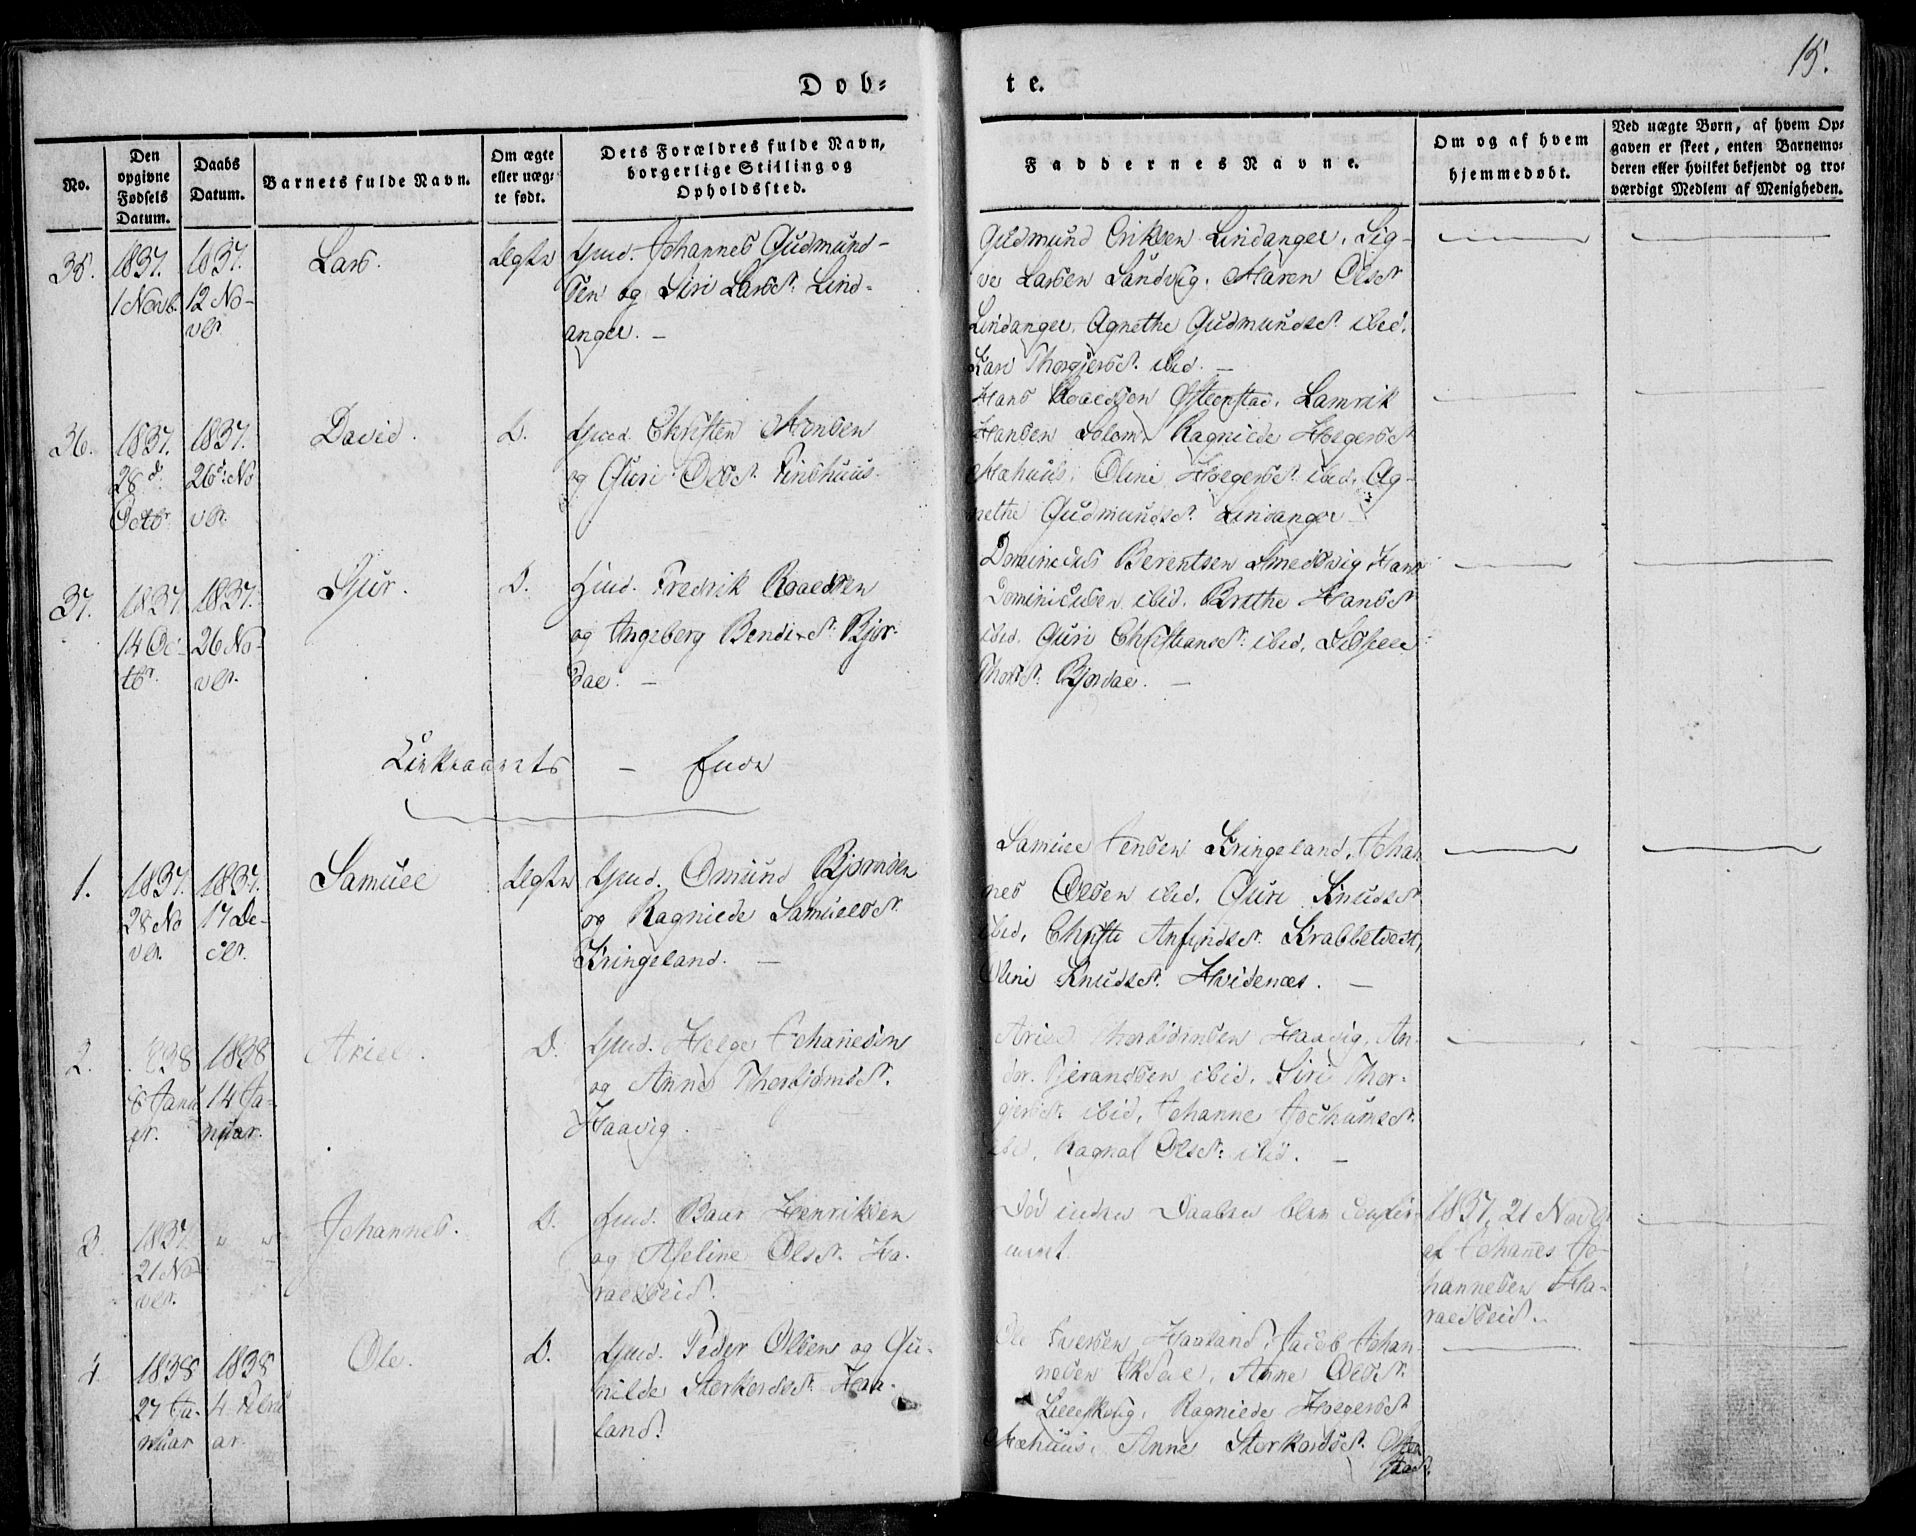 15.
Dob-
te.
No.
Den opgivne Fødsels Datum.
Daabs Datum.
Barnets fulde Navn.
Om ægte eller uægte født.
Dets Forældres fulde Navn, borgerlige Stilling og Opholdssted.
Faddernes Navne.
Om og af hvem hjemmedøbt.
Ved uægte Børn, af hvem Opgaven er skeet, enten Barnemoderen eller hvilket bekjendt og troværdigt Medlem af Menigheden.
35.
1837.
1 Novb.
1837.
12 No-
vbr.
Lars.
Ægte
Gmd. Johannes Gudmund-
sen og Siri Larsdt. Lind-
anger. —
Gudmund Eriksen Lindanger, Sig-
ve Larsen Sandvig, Maren Olsdt
Lindanger, Agnethe Gudmundsdt. ibid,
Kari Thorgjersdt. ibid. —
36.
1837.
28d.
Octbr.
1837.
26d. No
vbr.
David.
D.
Gmd. Christen Monsen
og Guri Olsdt. Findshuus.
Hans Roaldsen Østenstad, Lamrik
Hansen Solem, Ragnilde Holgersdt
Mæhuus, Oline Holgersdt. ibid, Ag-
nethe Gudmundsdt. Lindanger. —
37.
1837.
14 Oc-
tbr.
1837.
26 No-
vbr.
Sjur.
D.
Gmd. Fredrik Roaldsen
og Ingeborg Bendixdt. Bjor-
dal. —
Dominicus Berentsen Smedsvig, Hans
Dominicussen ibid, Brithe Hansdt
ibid, Guri Christiansdt: ibid,
Thorsdt: Bjordal. —
Kirkeaarets — Ende
1.
1837.
28 No
vbr.
1837.
17 De-
cbr.
Samuel
Ægte
Gmd. Omund Bjørnsen
og Ragnilde Samuelsdt.
Kringeland. —
Samuel Jensen Kringeland, Johan-
nes Olsen ibid, Guri Knudsdt
ibid, Christi Anfindsdt. Krabbetvedt,
Oline Knudsdt. Hvidenæs. —
2.
1838
6 Janu
ar.
1838
14 Ja-
nuar.
Ariel.
D.
Gmd. Helge Johannesen
og Anne Thorbjørnsdt.
Haavig.
Ariel Thorbjørnsen Haavig, An-
dor Tjerandsen ibid, Siri Thor-
gjersdt: ibid, Johanne Jochumsdt.
ibid, Ragna Olsdt: ibid. —
3.
1837.
21 No
vbr.
" "
Johannes.
D.
Gmd. Baar Henriksen
og Aseline Olsdt. Ha-
raldseid.
Død inden Daaben blev confir-
meret.
1837, 21 Novbr
af Johannes Jo-
hannesen Ha-
raldseid.
4.
1838
27 Ja-
nuar
1838
4 Febru
ar.
Ole.
D.
Gmd. Peder Olsen og Gu-
nilde Storkersdt. Haa-
land.
Ole Iversen Haaland, Jacob Johan-
nesen Ekdal, Anne Olsdt.
Lilleskog, Ragnilde Holgersdt
Mæhuus, Anne Storkersdt. Østen
stad.